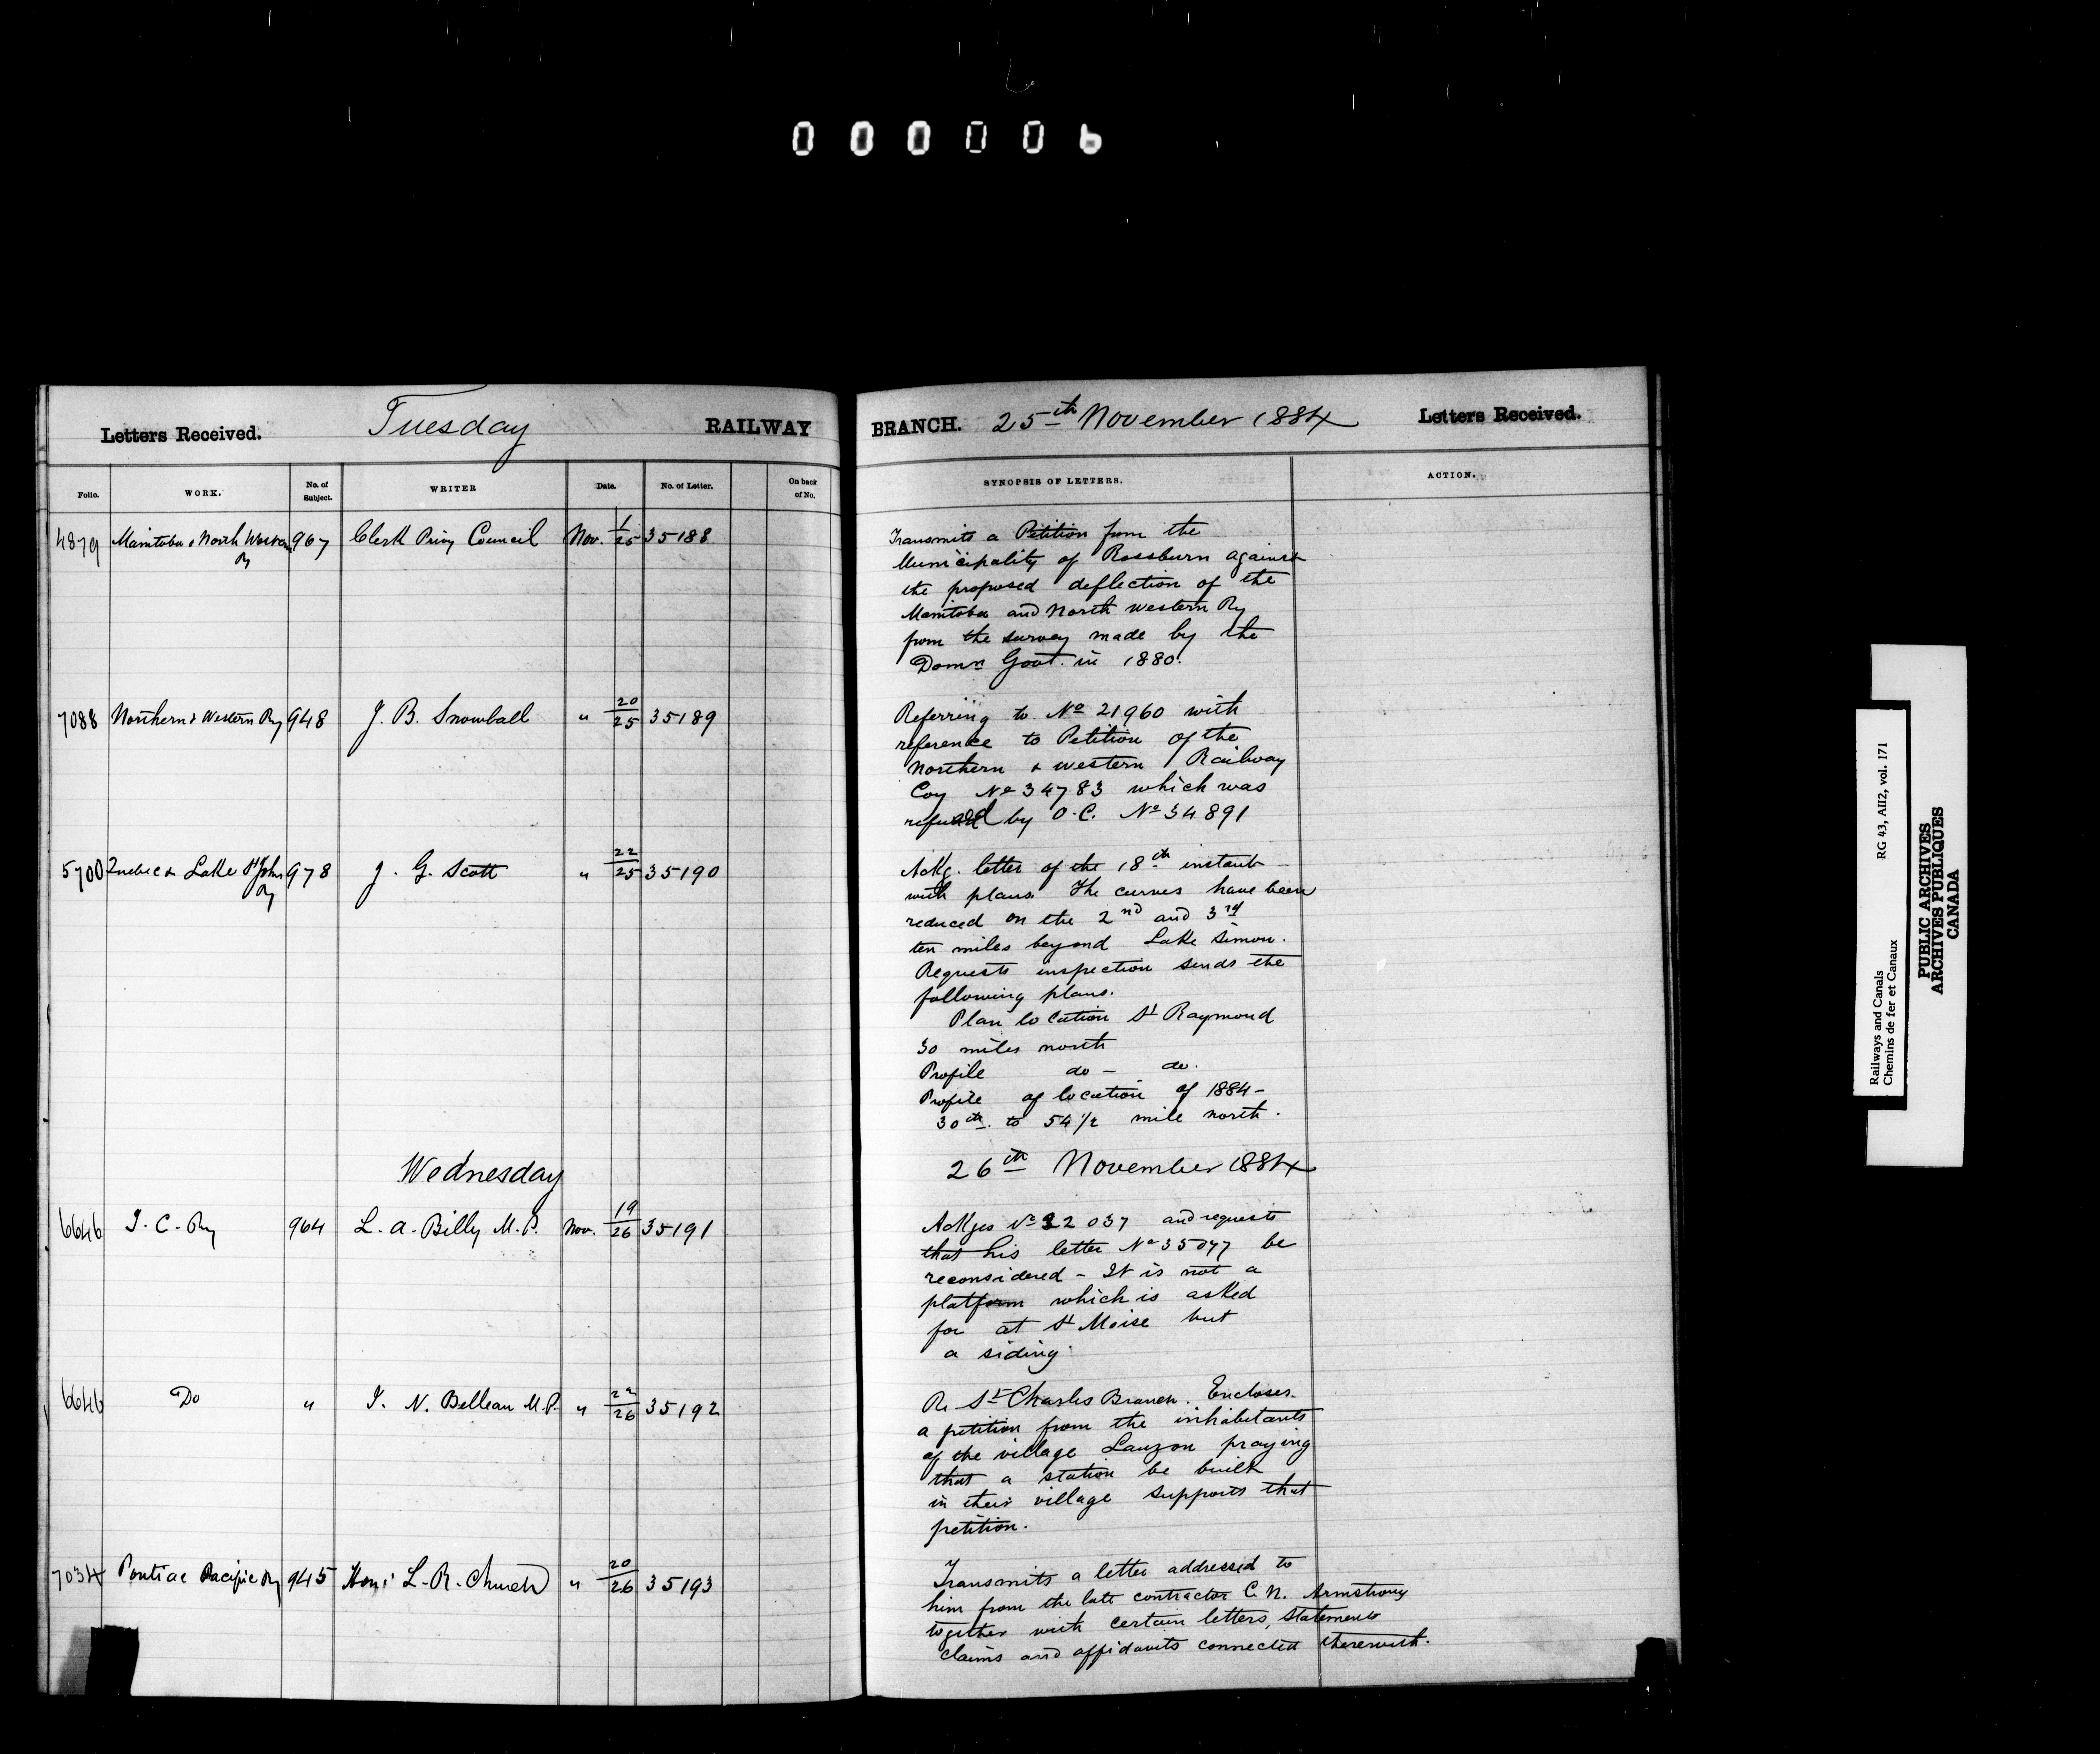 000006
Letters Received. Tuesday RAILWAY
BRANCH. 25th November 1884 Letters Received.
Folio. WORK. No. of Subject. WRITER Date. No. of Letter. On back of No.
SYNOPSIS OF LETTERS. ACTION.
4879 Manitoba & North Western Ry 967 Clerk Privy Council Nov. 1/25 35188
Transmits a Petition from the
Municipality of Rossburn against
the proposed deflection of the
Manitoba and North western Ry
from the survey made by the
Domn Govt. in 1880.
7088 Northern & Western Ry 948 J. B. Snowball " 20/25 35189
Referring to No 21960 with
reference to Petition of the
Northern & western Railway
Coy No 34783 which was
refused by O.C. No 34891
5700 Quebec & Lake St John Ry 978 J. G. Scott " 22/25 35190
Ackg. letter of the 18th instant
with plans. The curves have been
reduced on the 2nd and 3rd
ten miles beyond Lake Simon.
Requests inspection sends the
following plans.
Plan location St Raymond
30 miles north
Profile do - do.
Profile of location of 1884 -
30th to 54 1/2 mile north.
Wednesday 26th November 1884
6646 I. C. Ry 964 L. A. Billy M.P. Nov. 19/26 35191
Ackges No 22037 and requests
that his letter No 35077 be
reconsidered - It is not a
platform which is asked
for at St Moise but
a siding.
6646 Do " I. N. Belleau M.P. " 22/26 35192
Re St Charles Branch. Encloses
a petition from the inhabitants
of the village Lauzon praying
that a station be built
in their village supports that
petition.
7034 Pontiac Pacific Ry 945 Hon: L. R. Church " 20/26 35193
Transmits a letter addressed to
him from the late contractor C. N. Armstrong
together with certain letters, statements
claims and affidavits connected therewith.
Railways and Canals RG 43, AII2, vol. 171
Chemins de fer et Canaux
PUBLIC ARCHIVES
ARCHIVES PUBLIQUES
CANADA